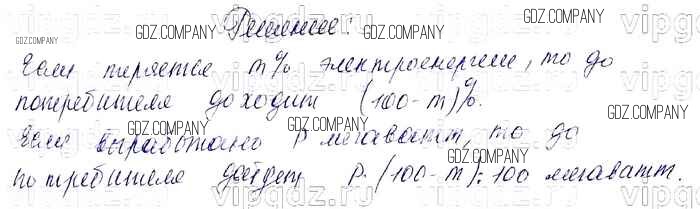 Решение:
Если теряется m% электроенергии, то до
потребителя доходит (100-m)%.
Если выработано P мегаватт, то до
потребителя дойдет P·(100-m):100 мегаватт.
GDZ.COMPANY
GDZ.COMPANY
GDZ.COMPANY
GDZ.COMPANY
GDZ.COMPANY
GDZ.COMPANY
GDZ.COMPANY
GDZ.COMPANY
vipgdz.ru